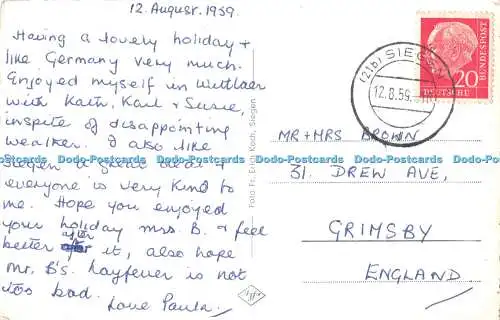 12. August. 1959.
Having a lovely holiday +
like Germany very much.
Enjoyed myself in Wittlaer
with Kath, Karl + Susie,
inspite of disappointing
weather. I also like
Siegen a great deal +
everyone is very kind to
me. Hope you enjoyed
your holiday Mrs. B. + feel
better after it, also hope
Mr. B's hayfever is not
too bad.
Love Paula.
Foto Fr. Erich Koch, Siegen
Agfa
(21b) SIEGEN
12.8.59.
DEUTSCHE BUNDESPOST
20
MR + MRS BROWN
31. DREW AVE,
GRIMSBY
ENGLAND
Dodo-Postcards Dodo-Postcards Dodo-Postcards Dodo-Postcards Dodo-Postcards Dodo-Postcards